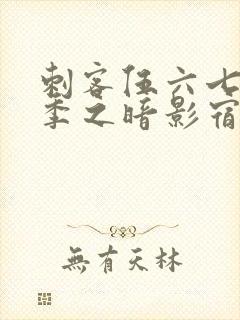 刺客伍六七
季之暗影宿
無有天林